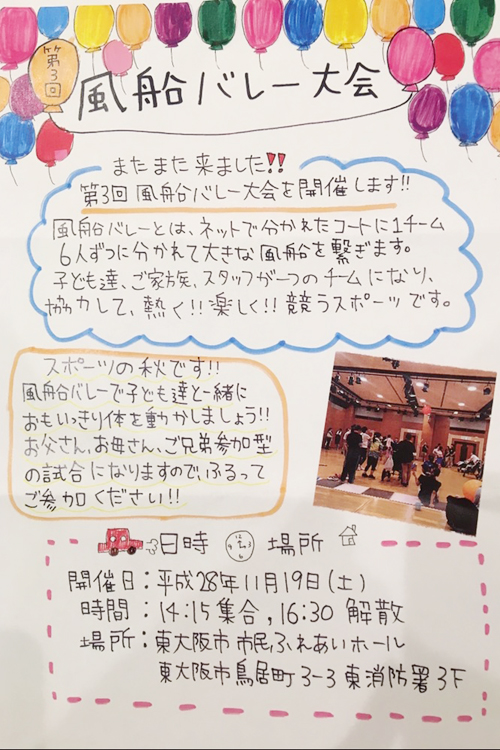 第3回
風船バレー大会
またまた来ました!!
第3回 風船バレー大会を開催します!!
風船バレーとは、ネットで分かれたコートに1チーム
6人ずつに分かれて大きな風船を繋ぎます。
子ども達、ご家族、スタッフが一つのチームになり、
協力して、熱く!!楽しく!!競うスポーツです。
スポーツの秋です!!
風船バレーで子ども達と一緒に
おもいっきり体を動かしましょう!!
お父さん、お母さん、ご兄弟参加型
の試合になりますので、ふるって
ご参加ください!!
日時 場所
開催日:平成28年11月19日(土)
時間:14:15集合,16:30 解散
場所:東大阪市 市民ふれあいホール
東大阪市鳥居町3-3 東消防署3F